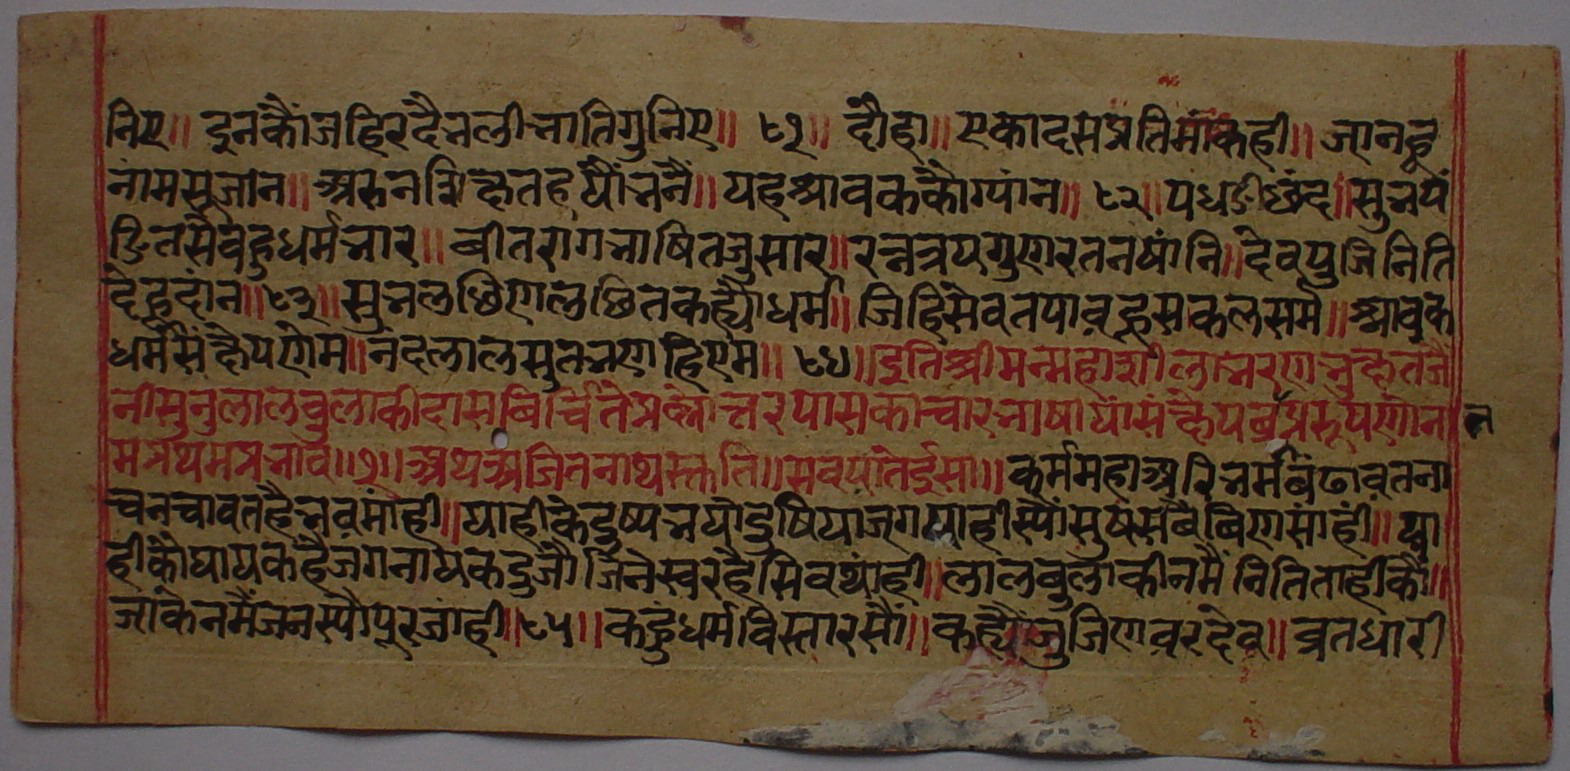 निए॥ इनकौंजहिरदैनलीभातिगुनिए॥ ८१॥ दौहा॥ एकादसप्रतिमांकही॥ जानहू
नामसूजांन॥ अरुनमिकतहयौंभनैं॥ यहश्रावककौग्यांन॥ ८२॥ पधडीछंद॥ सुभपं
डितसेवहुधर्मभार॥ बीतरागभाषितजुसार॥ रत्नत्रयगुणरतनषांनि॥ देवपुजिनिति
देहुदांन॥ ८३॥ सुभलछिणलछितकह्यौधर्म॥ जिहिसेवतपावहुसकलसर्म॥ श्रावक
धर्मसंछैपणेम॥ नंदलालसुतभणहिएम॥ ८४॥ इतिश्रीमन्महाशीलाभरणभूषितजै
नीसुनुलालबुलाकीदासबिर्चितेप्रश्नोत्तरपासकाचारभाषायांसंछैपबर्षप्रभूषणोन
मप्रथमप्रभाव॥१॥ अथअजितनाथस्तुति॥ सवयातेईसा॥ कर्ममहाअरिभर्मबढावतना
चनचावतहैभवमांही॥ याहीकेदुष्यभयौदुषियाजगयाहीस्यौंसुषसबैबिणसांही॥ या
हीकौघायकहैजगनायकदुजौजिनेस्वरहैसिवथांही॥ लालबुलाकीनमैंनितिताहीकौं॥
जाकेनमैंजनस्यौपुरजांही॥८५॥ कहुधर्मविस्तारसौं॥ कह्यौजुजिणवरदेव॥ व्रतधारी